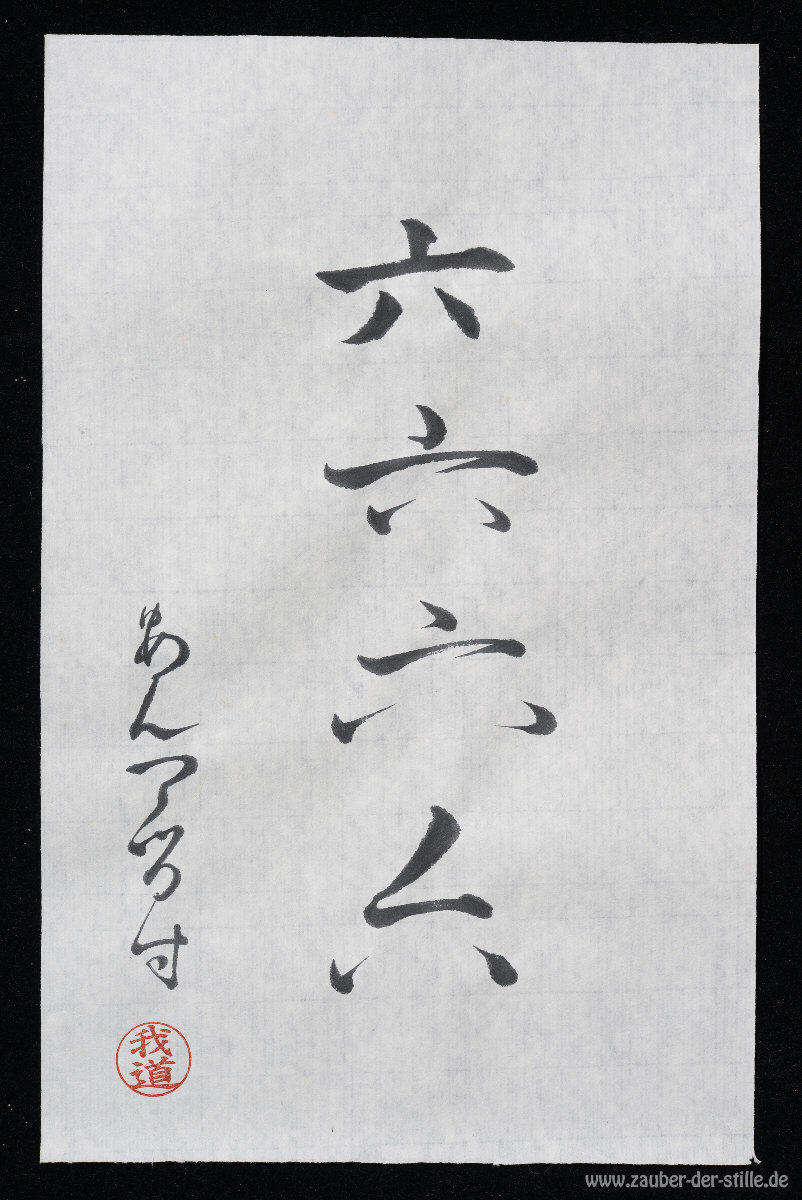 六六六六
あん
我道
www.zauber-der-stille.de